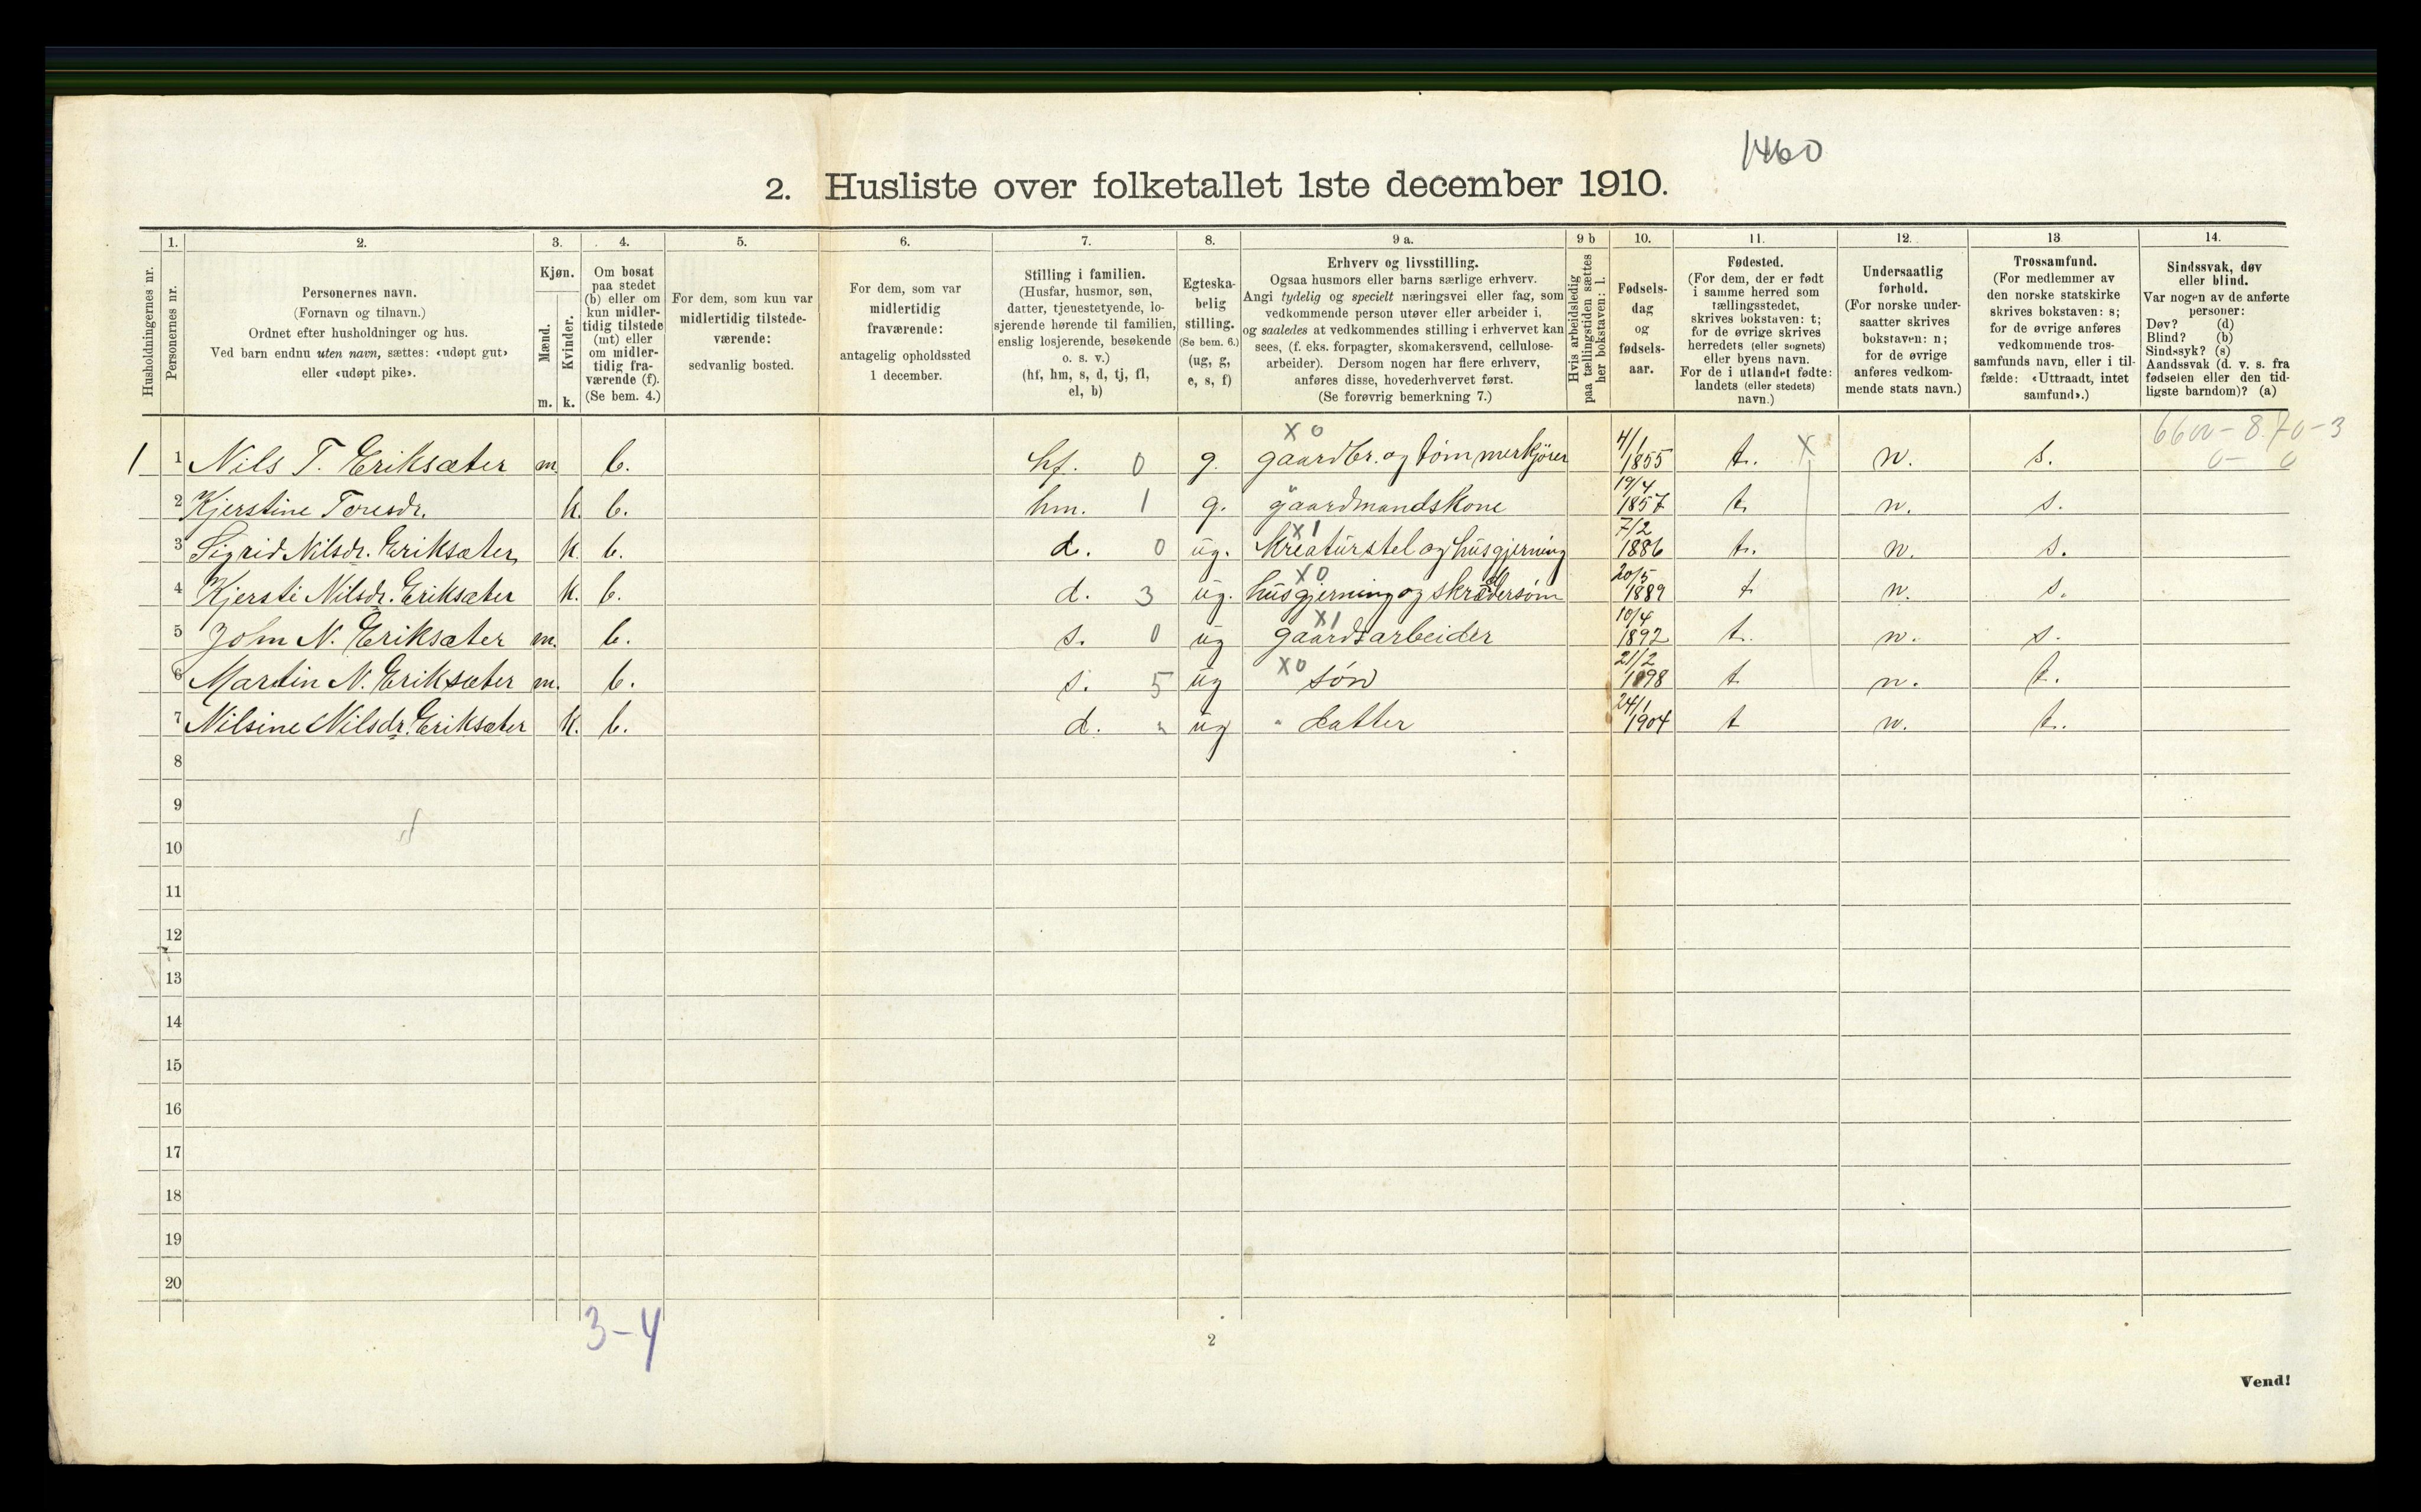 1460
2. Husliste over folketallet 1ste december 1910.
Husholdningernes nr.
1.
Personernes nr.
2.
Personernes navn.
(Fornavn og tilnavn.)
Ordnet efter husholdninger og hus.
Ved barn endnu uten navn, sættes: «udøpt gut»
eller «udøpt pike».
3.
Kjøn.
Mænd.
m.
Kvinder.
k.
4.
Om bosat
paa stedet
(b) eller om
kun midler-
tidig tilstede
(mt) eller
om midler-
tidig fra-
værende (f).
(Se bem. 4.)
5.
For dem, som kun var
midlertidig tilstede-
værende:
sedvanlig bosted.
6.
For dem, som var
midlertidig
fraværende:
antagelig opholdssted
1 december.
7.
Stilling i familien.
(Husfar, husmor, søn,
datter, tjenestetyende, lo-
sjerende hørende til familien,
enslig losjerende, besøkende
o. s. v.)
(hf, hm, s, d, tj, fl,
el, b)
8.
Egteska-
belig
stilling.
(Se bem. 6.)
(ug, g,
e, s, f)
9 a.
Erhverv og livsstilling.
Ogsaa husmors eller barns særlige erhverv.
Angi tydelig og specielt næringsvei eller fag, som
vedkommende person utøver eller arbeider i,
og saaledes at vedkommendes stilling i erhvervet kan
sees, (f. eks. forpagter, skomakersvend, cellulose-
arbeider). Dersom nogen har flere erhverv,
anføres disse, hovederhvervet først.
(Se forøvrig bemerkning 7.)
9 b
Hvis arbeidsledig
paa tællingstiden sættes
her bokstaven: l.
10.
Fødsels-
dag
og
fødsels-
aar.
11.
Fødested.
(For dem, der er født
i samme herred som
tællingsstedet,
skrives bokstaven: t;
for de øvrige skrives
herredets (eller sognets)
eller byens navn.
For de i utlandet fødte:
landets (eller stedets)
navn.)
12.
Undersaatlig
forhold.
(For norske under-
saatter skrives
bokstaven: n;
for de øvrige
anføres vedkom-
mende stats navn.)
13
Trossamfund.
(For medlemmer av
den norske statskirke
skrives bokstaven: s;
for de øvrige anføres
vedkommende tros-
samfunds navn, eller i til-
fælde: «Uttraadt, intet
samfund».)
14.
Sindssvak, døv
eller blind.
Var nogen av de anførte
personer:
Døv? (d)
Blind? (b)
Sindssyk? (s)
Aandssvak (d. v. s. fra
fødselen eller den tid-
ligste barndom)? (a)
6600-8.70-3
0- 0
1 1 Nils T. Eriksæter m. b. hf. 0 g. X 0 gaardbr. og tømmerkjörer 4/1 1855 t. X n. s.
2 Kjerstine Toresdr. k. b. hm. 1 g. " gaardmandskone 19/4 1857 t. n. s.
3 Sigrid Nilsdr. Eriksæter k. b. d. 0 ug. X 1 Kreaturstel og husgjerning 7/2 1886 t. n. s.
4 Kjersti Nilsdr. Eriksæter k. b. d. 3 ug. X 0 husgjerning og skræddersøm 20/5 1889 t n. s.
5 John N. Eriksæter m. b. s. 0 ug X 1 gaardsarbeider 10/4 1892 t. n. s.
6 Martin N. Eriksæter m. b. s. 5 ug X 0 søn 21/2 1898 t n. t.
7 Nilsine Nilsdr. Eriksæter k. b. d. " ug " datter 24/1 1904 t n. t.
8
9
10
11
12
13
14
15
16
17
18
19
20
3-4
2
Vend!